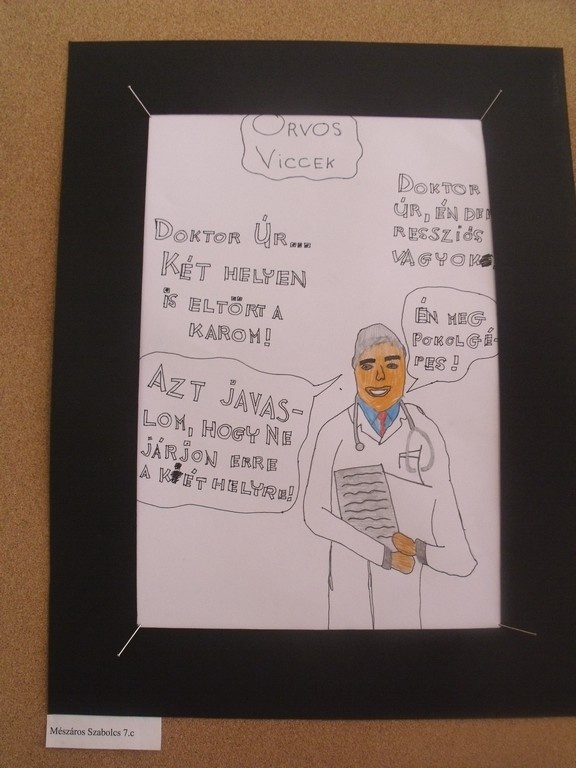 ORVOS
VICCEK
DOKTOR ÚR...
KÉT HELYEN
IS ELTÖRT A
KAROM!
AZT JAVAS-
LOM, HOGY NE
JÁRJON ERRE
A KÉT HELYRE!
DOKTOR
ÚR, ÉN DEP
RESSZIÓS
VAGYOK
ÉN MEG
POKOLGÉ-
PES!
Mészáros Szabolcs 7.c